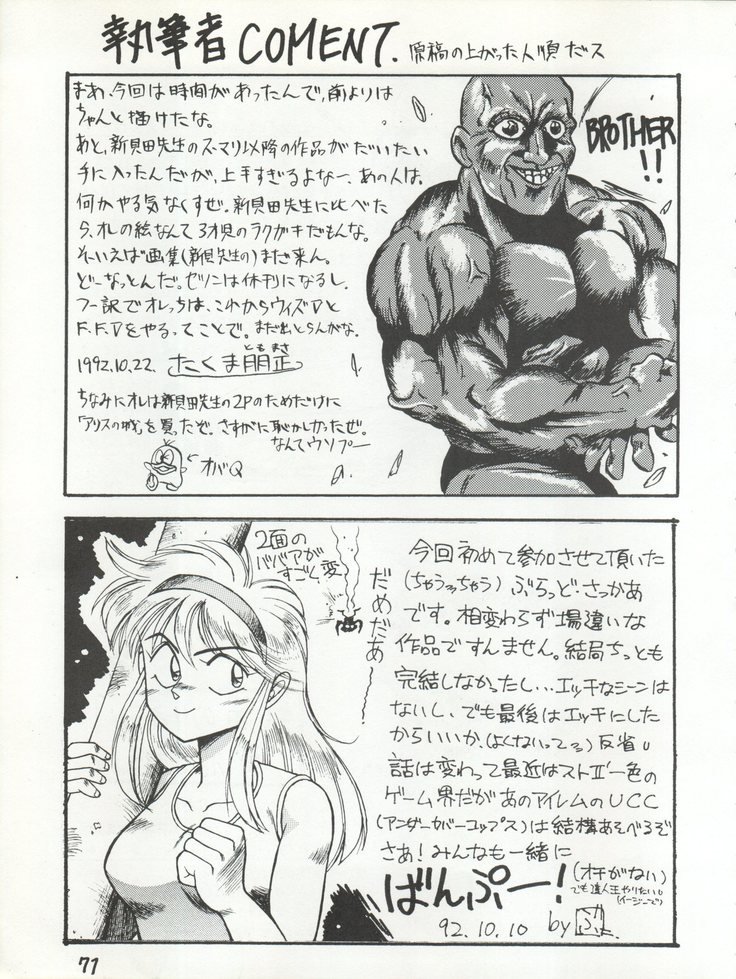 執筆者 COMENT. 原稿の上がった人順だス
まあ、今回は時間があったんで、前よりは
ちゃんと描けたな。
あと、新貝田先生のズ・マリ以降の作品がだいたい
手に入ったんだが、上手すぎるよなー、あの人は。
何かやる気なくすぜ。新貝田先生に比べた
ら、オレの絵なんて3才児のラクガキだもんな。
そーいえば画集(新貝先生の)まだ来ん。
どーなっとんだ。ゼノンは休刊になるし。
フー訳でオレっちは、これからウィズVと
F.F.Vをやるってことで。まだ出とらんがな。
1992.10.22. たくま朋正
ともまさ
ちなみにオレは新貝田先生の2Pのためだけに
「アリスの城」を買たぞ。さすがに恥かしかったぜ。
なんてウソプー
←オバQ
BROTHER
!!
2面の
ババアが
すごく変
だめだあ〜
今回初めて参加させて頂いた
(ちゃうっちゃう) ぶらっど・さっかあ
です。相変わらず場違いな
作品ですんません。結局ちっとも
完結しなかったし...エッチなシーンは
ないし、でも最後はエッチにした
からいいか。(よくないってろ) 反省。
話は変わって最近はストⅡ'一色の
ゲーム界だがあのアイレムのUCC
(アンダーカバーコップス)は結構あそべるぞ
さあ!みんなも一緒に
ばんぷー!
(オチがない)
でも達人王やりたい。
(イージーで)
92.10.10 by
71